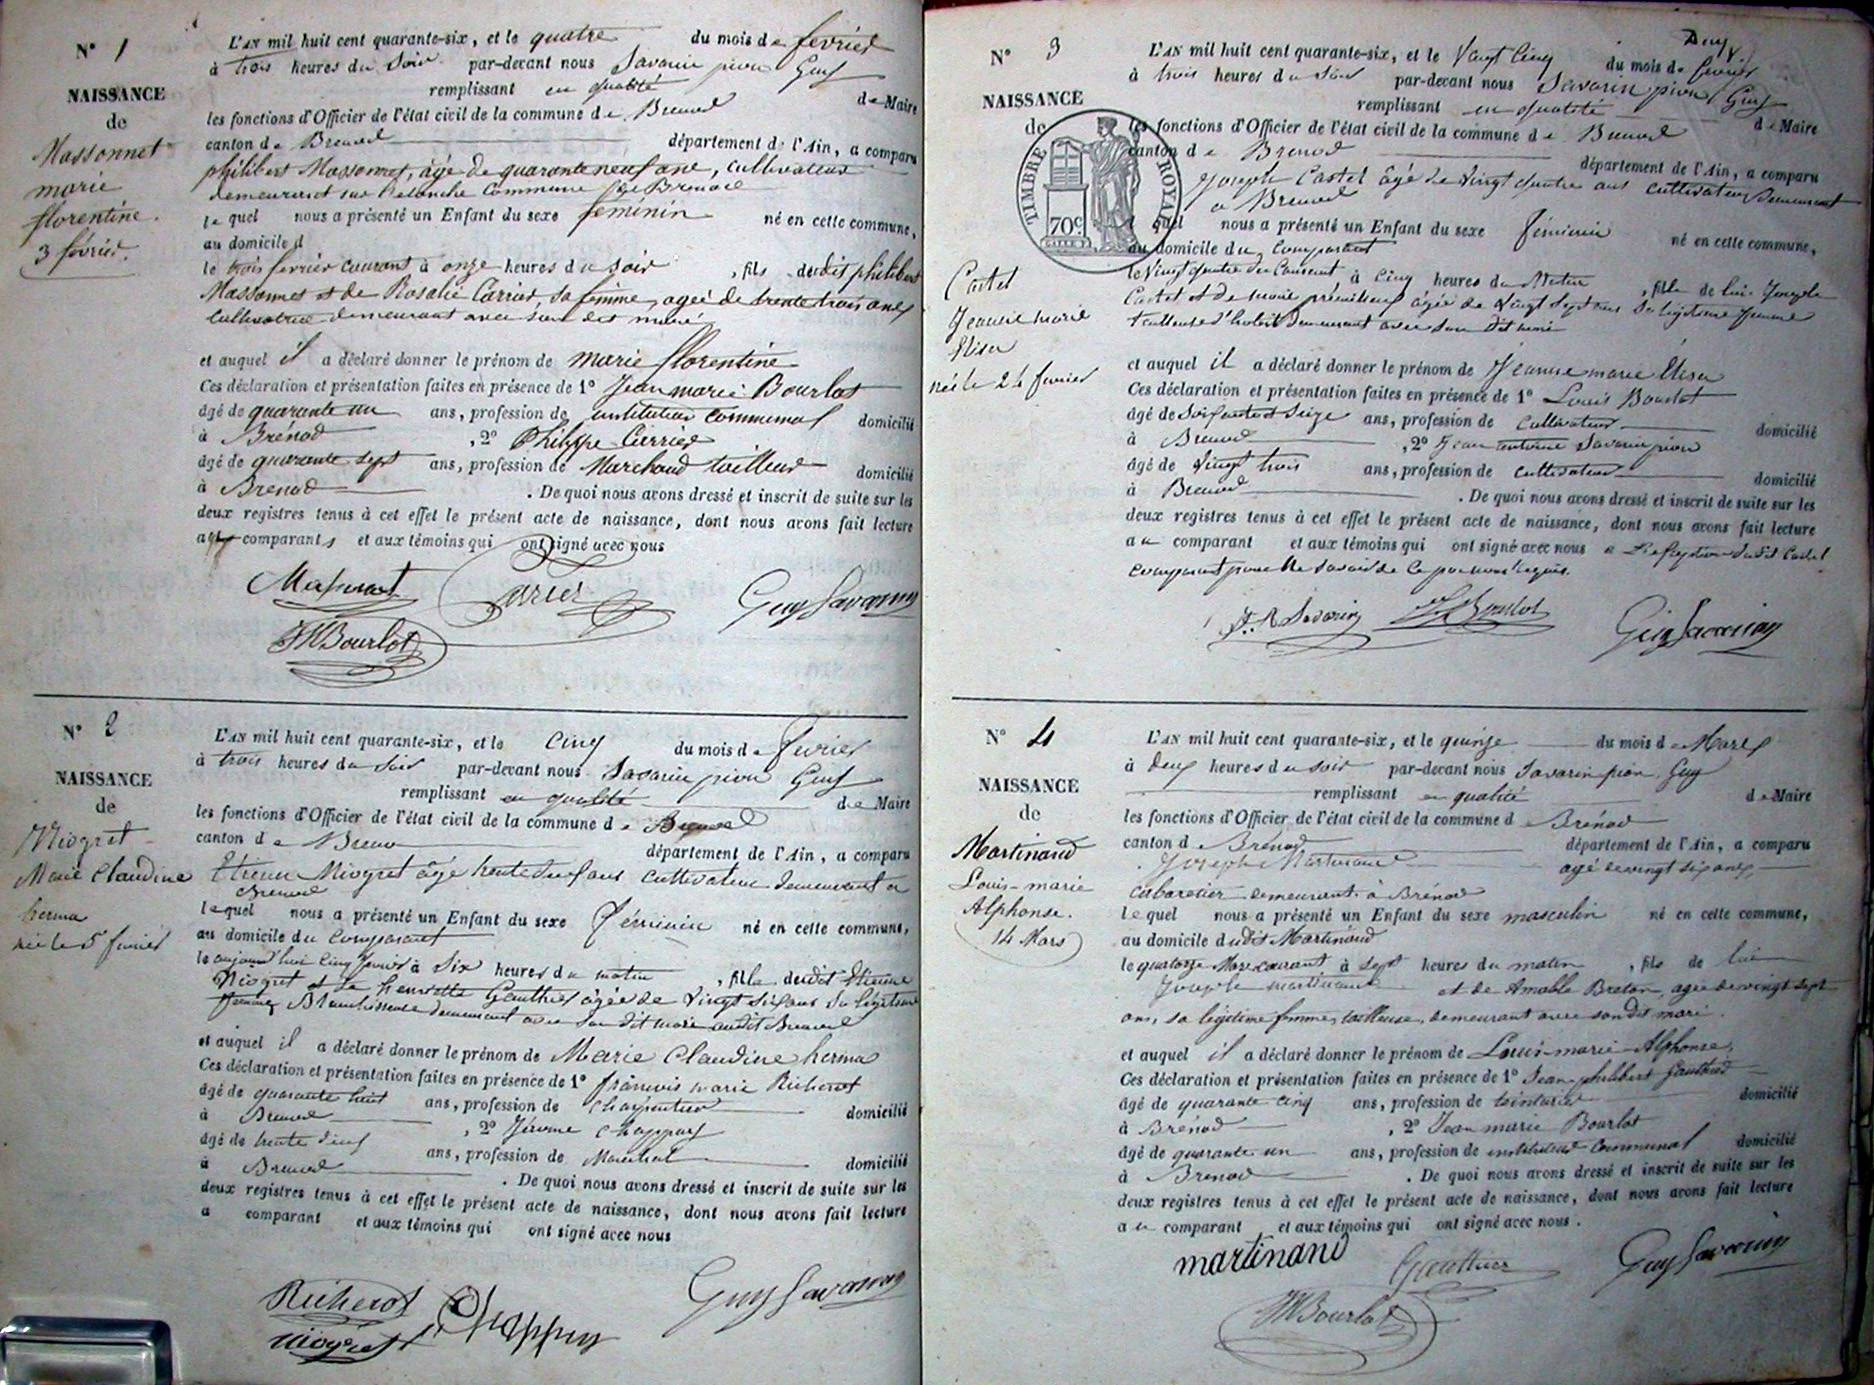 N° 1
NAISSANCE
de
Massonnet
marie
florentine.
3 février.
L'AN mil huit cent quarante-six, et le quatre du mois de février
à trois heures du soir par-devant nous Savarin pion Guy
remplissant en qualité de Maire
les fonctions d'Officier de l'état civil de la commune de Brenod
canton de Brenod département de l'Ain, a comparu
philibert Massonnet, âgé de quarante neuf ans, cultivateur
demeurant sur commune de Brenod
lequel nous a présenté un Enfant du sexe féminin né en cette commune,
au domicile d
le trois fevrier courant à onze heures du soir, fils dudit philibert
Massonnet et de Rosalie Carrier, sa femme, agée de trente trois ans
cultivatrice demeurant avec son dit mari
et auquel il a déclaré donner le prénom de marie florentine
Ces déclaration et présentation faites en présence de 1° Jean marie Bourlot
âgé de quarante un ans, profession de instituteur communal domicilié
à Brénod, 2° Philippe Carrier
âgé de quarante sept ans, profession de Marchand tailleur domicilié
à Brenod. De quoi nous avons dressé et inscrit de suite sur les
deux registres tenus à cet effet le présent acte de naissance, dont nous avons fait lecture
aux comparants et aux témoins qui ont signé avec nous
Massonnet Carrier Guy Savarin
JM Bourlot
N° 2
NAISSANCE
de
Niogret
Marie Claudine
herma
née le 5 fevrier
L'AN mil huit cent quarante-six, et le cinq du mois de fevrier
à trois heures du soir par-devant nous Savarin pion Guy
remplissant en qualité de Maire
les fonctions d'Officier de l'état civil de la commune de Brenod
canton de Brenod département de l'Ain, a comparu
Etienne Niogret âgé trente ans cultivateur demeurant a
Brenod
lequel nous a présenté un Enfant du sexe féminin né en cette commune,
au domicile du comparant
le aujourd'hui cinq fevrier à six heures du matin, fille dudit Etienne
Niogret et de henriette Gauthier âgée de vingt six ans sa légitime
femme, Blanchisseuse demeurant avec son dit mari audit Brenod
et auquel il a déclaré donner le prénom de Marie Claudine herma
Ces déclaration et présentation faites en présence de 1° francois marie Richerot
âgé de quarante huit ans, profession de charpentier domicilié
à Brenod, 2° Jérome Chappuy
âgé de trente ans, profession de Marechal domicilié
à Brenod. De quoi nous avons dressé et inscrit de suite sur les
deux registres tenus à cet effet le présent acte de naissance, dont nous avons fait lecture
a comparant et aux témoins qui ont signé avec nous
Richerot Chappuy Guy Savarin
niogret
N° 3
NAISSANCE
de
TIMBRE ROYAL
70c
Castel
Jeanne marie
Elisa
née le 24 fevrier
L'AN mil huit cent quarante-six, et le vingt cinq du mois de fevrier
à trois heures du soir par-devant nous Savarin pion Guy
remplissant en qualité de Maire
les fonctions d'Officier de l'état civil de la commune de Brenod
canton de Brenod département de l'Ain, a comparu
Joseph Castel âgé de vingt quatre ans cultivateur demeurant
a Brenod
lequel nous a présenté un Enfant du sexe féminin né en cette commune,
au domicile du comparant
le vingt quatre du courant à cinq heures du matin, fille de lui Joseph
Castel et de marie âgée de vingt sept ans sa légitime femme
demeurant avec son dit mari
et auquel il a déclaré donner le prénom de Jeanne marie Elisa
Ces déclaration et présentation faites en présence de 1° Louis Bourlot
âgé de soixante et seize ans, profession de cultivateur domicilié
à Brenod, 2° Jean antoine Savarin pion
âgé de vingt trois ans, profession de cultivateur domicilié
à Brenod. De quoi nous avons dressé et inscrit de suite sur les
deux registres tenus à cet effet le présent acte de naissance, dont nous avons fait lecture
au comparant et aux témoins qui ont signé avec nous a l'exception dudit Castel
comparant pour ne savoir de ce par nous requis.
Savarin Bourlot Guy Savarin
N° 4
NAISSANCE
de
Martinand
Louis-marie
Alphonse.
14 Mars
L'AN mil huit cent quarante-six, et le quinze du mois de Mars
à deux heures du soir par-devant nous Savarin pion Guy
remplissant en qualité de Maire
les fonctions d'Officier de l'état civil de la commune de Brénod
canton d Brénod département de l'Ain, a comparu
Joseph Martinand agé de vingt six ans
cabaretier demeurant à Brénod
lequel nous a présenté un Enfant du sexe masculin né en cette commune,
au domicile dudit Martinand
le quatorze Mars courant à sept heures du matin, fils de lui
Joseph martinand et de Amable Breton, agée de vingt sept
ans, sa légitime femme, tailleuse, demeurant avec son dit mari.
et auquel il a déclaré donner le prénom de Louis-marie-Alphonse,
Ces déclaration et présentation faites en présence de 1° Jean philibert Gauthier
âgé de quarante cinq ans, profession de teinturier domicilié
à Brénod, 2° Jean marie Bourlot
âgé de quarante un ans, profession de instituteur communal domicilié
à Brenod. De quoi nous avons dressé et inscrit de suite sur les
deux registres tenus à cet effet le présent acte de naissance, dont nous avons fait lecture
au comparant et aux témoins qui ont signé avec nous.
martinand Gauthier Guy Savarin
JM Bourlot